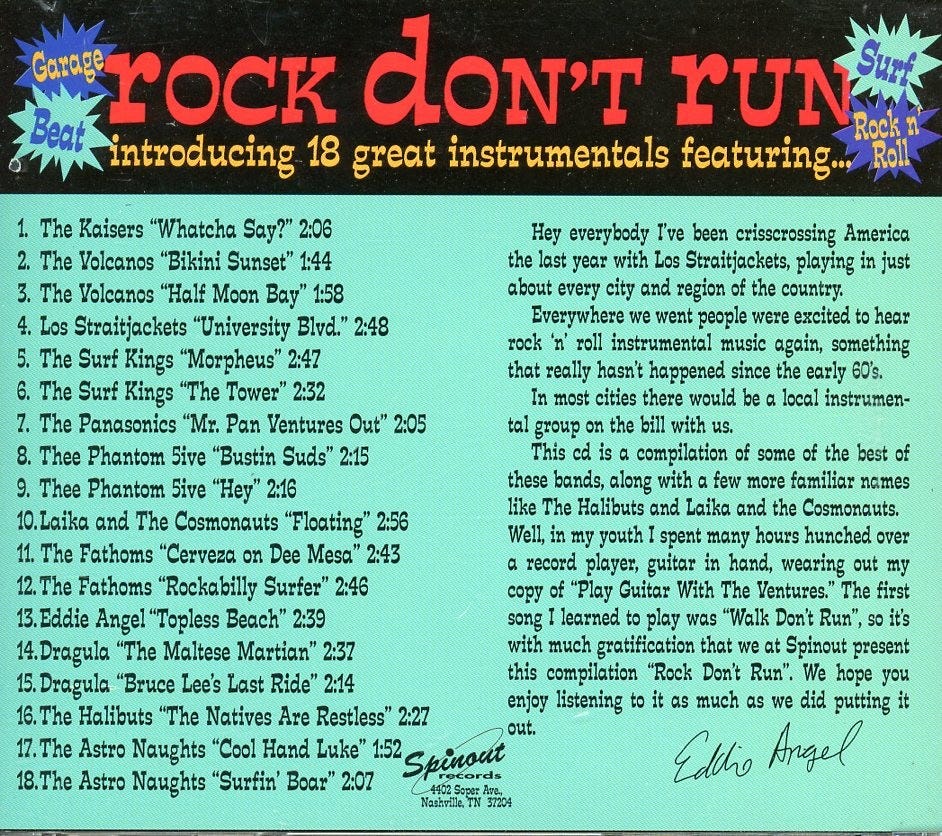 Garage
Beat
rOCK dON'T rUN
Surf
Rock n'
Roll
introducing 18 great instrumentals featuring...
1. The Kaisers "Whatcha Say?" 2:06
2. The Volcanos "Bikini Sunset" 1:44
3. The Volcanos "Half Moon Bay" 1:58
4. Los Straitjackets "University Blvd." 2:48
5. The Surf Kings "Morpheus" 2:47
6. The Surf Kings "The Tower" 2:32
7. The Panasonics "Mr. Pan Ventures Out" 2:05
8. Thee Phantom 5ive "Bustin Suds" 2:15
9. Thee Phantom 5ive "Hey" 2:16
10.Laika and The Cosmonauts "Floating" 2:56
11. The Fathoms "Cerveza on Dee Mesa" 2:43
12. The Fathoms "Rockabilly Surfer" 2:46
13.Eddie Angel "Topless Beach" 2:39
14.Dragula "The Maltese Martian" 2:37
15.Dragula "Bruce Lee's Last Ride" 2:14
16.The Halibuts "The Natives Are Restless" 2:27
17.The Astro Naughts "Cool Hand Luke" 1:52
18.The Astro Naughts "Surfin' Boar" 2:07
Hey everybody I've been crisscrossing America
the last year with Los Straitjackets, playing in just
about every city and region of the country.
Everywhere we went people were excited to hear
rock 'n' roll instrumental music again, something
that really hasn't happened since the early 60's.
In most cities there would be a local instrumen-
tal group on the bill with us.
This cd is a compilation of some of the best of
these bands, along with a few more familiar names
like The Halibuts and Laika and the Cosmonauts.
Well, in my youth I spent many hours hunched over
a record player, guitar in hand, wearing out my
copy of "Play Guitar With The Ventures." The first
song I learned to play was "Walk Don't Run", so it's
with much gratification that we at Spinout present
this compilation "Rock Don't Run". We hope you
enjoy listening to it as much as we did putting it
out.
Eddie Angel
Spinout
records
4402 Soper Ave.,
Nashville, TN 37204